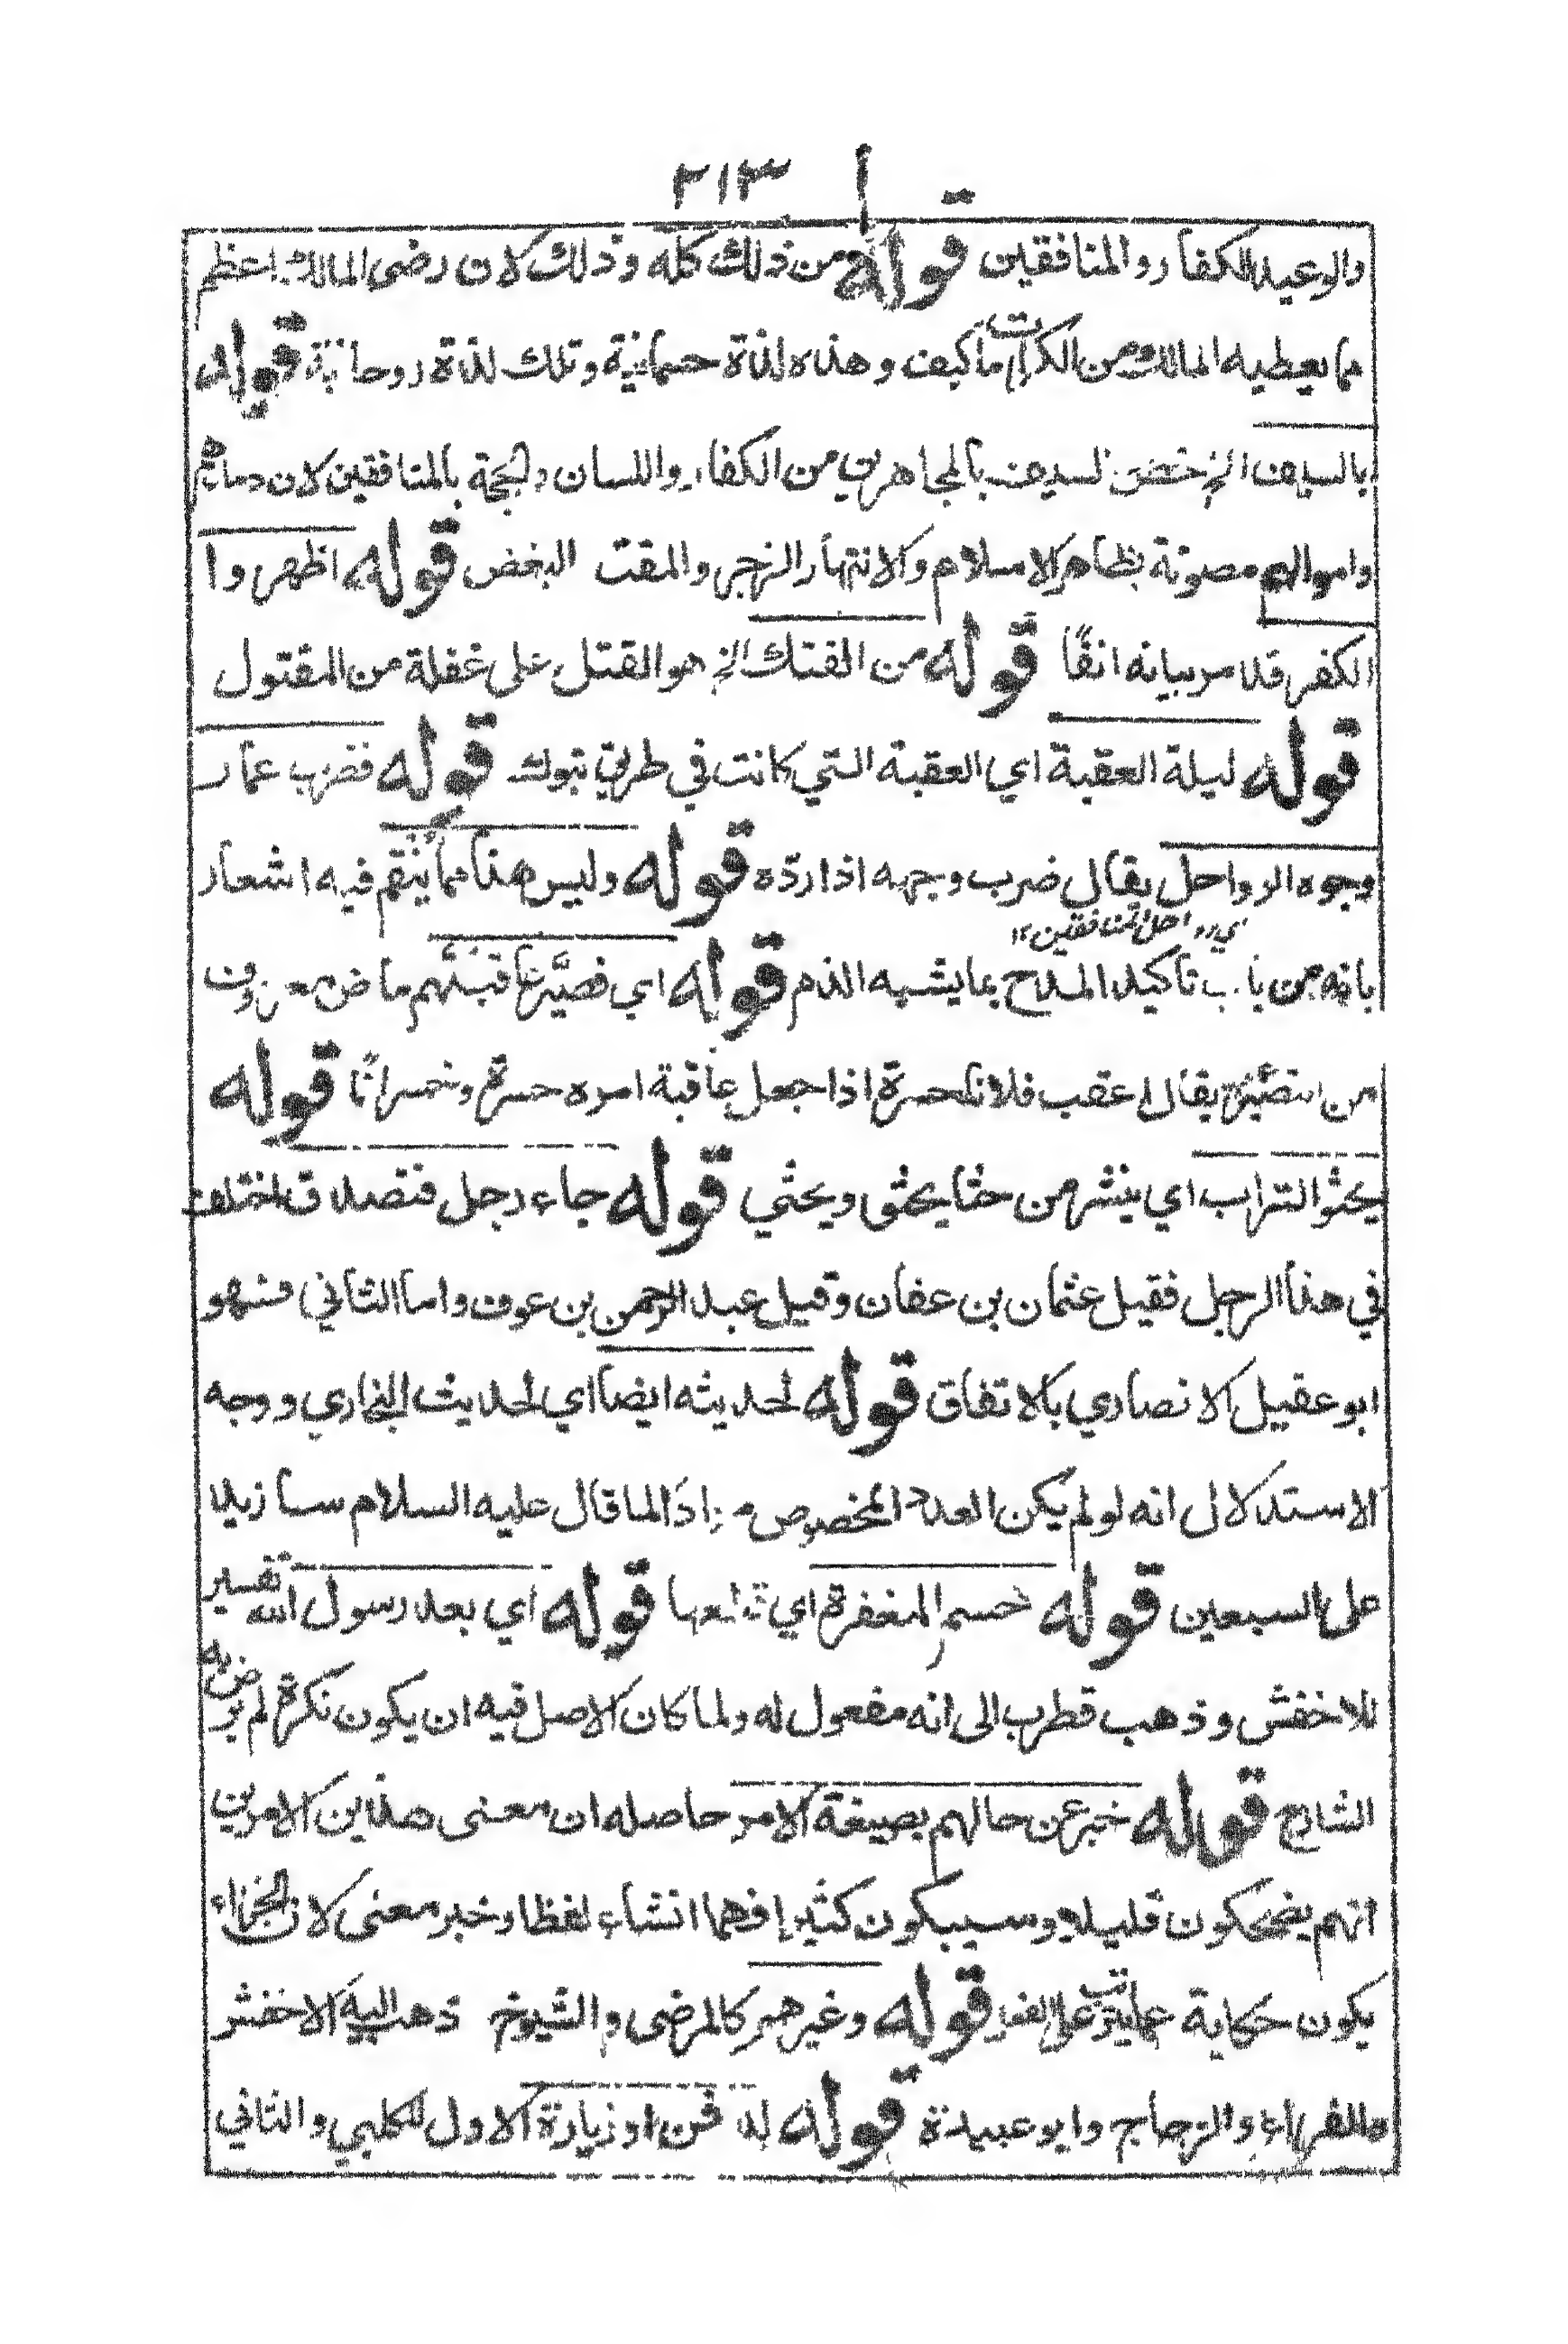 ٣١٣
والوعيد للكفار والمنافقين قوله من ذلك كله وذلك لان رضى المالك اعظم
مما يعطيه المالك من الكرامات كيف وهذه لذة جسمانية وتلك لذة روحانية قوله
بالسيف الخ خص السيف بالمجاهرين من الكفار واللسان والحجة بالمنافقين لان دمائهم
واموالهم مصونة بظاهر الاسلام والانتهار الزجر والمقت البغض قوله اظهروا
الكفر قد مر بيانه انفًا قوله من الفتك الخ هو القتل على غفلة من المقتول
قوله ليلة العقبة اي العقبة التي كانت في طريق تبوك قوله فضرب عمار
وجوه الرواحل يقال ضرب وجهه اذا ردّه قوله وليس هذا مما ينقم فيه اشعار
اي رواحل المنافقين ١٢
بانه من باب تاكيد المدح بما يشبه الذم قوله اي فصيّر عاقبتهم ماض معروف
من التصيير يقال اعقب فلانا حسرة اذا جعل عاقبة امره حسرة وخسرانًا قوله
يحثوا التراب اي ينثر من حثا يحثى ويحثي قوله جاء رجل فتصدق اختلف
في هذا الرجل فقيل عثمان بن عفان وقيل عبد الرحمن بن عوف واما الثاني فهو
ابو عقيل الانصاري بالاتفاق قوله لحديثه ايضا اي لحديث البخاري ووجه
الاستدلال انه لو لم يكن العدد المخصوص مرادًا لما قال عليه السلام سازيد
على السبعين قوله حسم المغفرة اي قوله اي بعد رسول الله تفسير
للاخفش وذهب قطرب الى انه مفعول له ولما كان الاصل فيه ان يكون نكرة لم يرض به
الشارح قوله خبر عن حالهم بصيغة الامر حاصله ان معنى هذين الامرين
انهم يضحكون قليلا وسيبكون كثيرا فهما انشاء لفظا وخبر معنى لان الجزاء
يكون حكاية عما يترتب على الفعل قوله وغيرهم كالمرضى والشيوخ ذهب اليه الاخفش
والفراء والزجاج وابو عبيدة قوله او زيادة الاول للكلبي والثاني